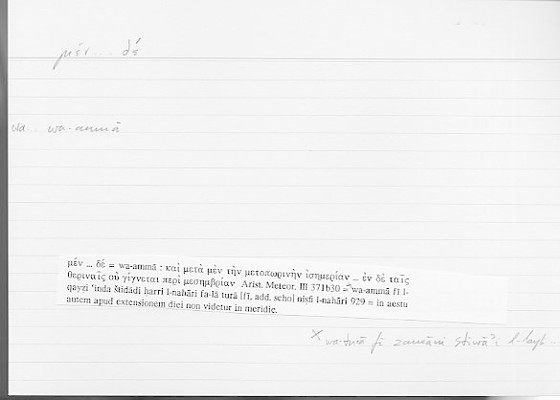 μέν ... δέ
wa.. wa-ammā
μέν ... δέ = wa-ammā : καὶ μετὰ μὲν τὴν μετοπωρινὴν ἰσημερίαν ... ἐν δὲ ταῖς
θεριναῖς οὐ γίγνεται περὶ μεσημβρίαν Arist. Meteor. III 371b30 = wa-ammā fī l-
qayẓi ʿinda štidādi ḥarri l-nahāri fa-lā turā [fī, add. schol niṣfi l-nahāri 929 = in aestu
autem apud extensionem diei non videtur in meridie.
wa-turā fī zamāni stiwāʾi l-layl..